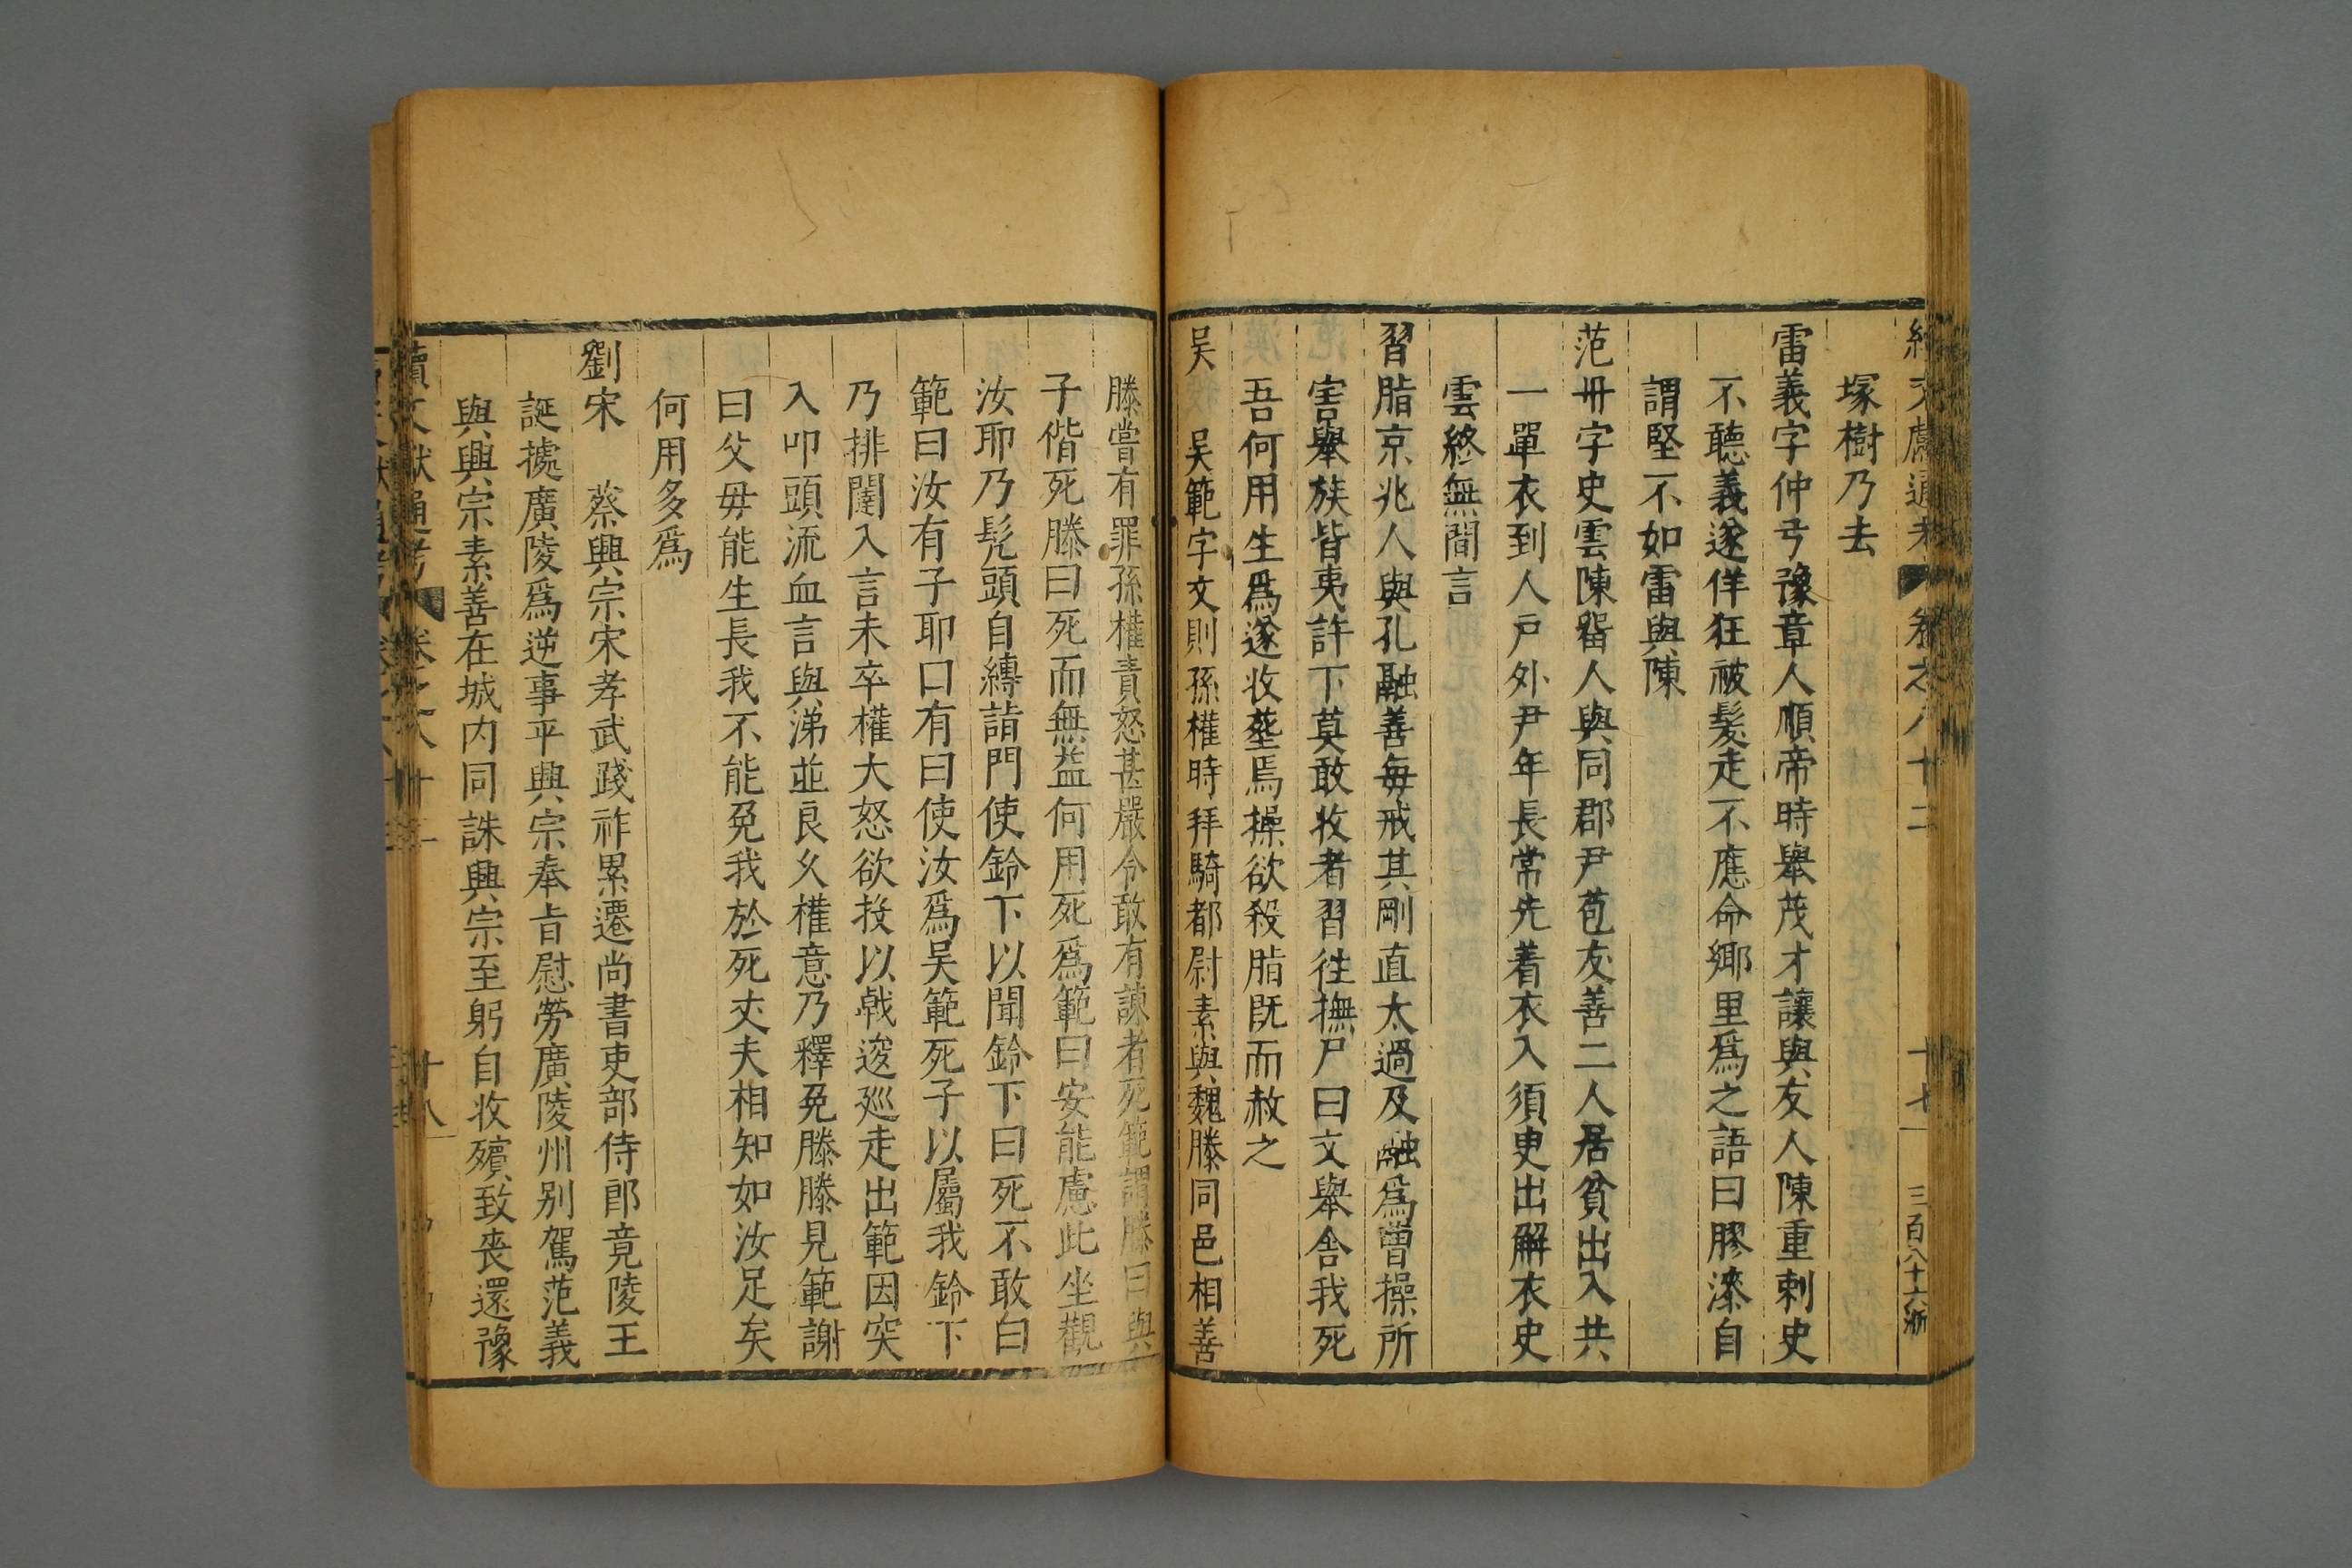 續文獻通考 卷之八十二 十七 三百八十六 浙
塚樹乃去
雷義字仲弓豫章人順帝時舉茂才讓與友人陳重刺史
不聽義遂佯狂被髮走不應命鄉里爲之語曰膠漆自
謂堅不如雷與陳
范冊字史雲陳留人與同郡尹苞友善二人居貧出入共
一單衣到人戶外尹年長常先着衣入須臾出解衣史
雲終無間言
習脂京兆人與孔融善每戒其剛直太過及融爲曹操所
害舉族皆夷許下莫敢收者習徃撫尸曰文舉舍我死
吾何用生爲遂收塟焉操欲殺脂既而赦之
吳 吳範字文則孫權時拜騎都尉素與魏滕同邑相善
滕嘗有罪孫權責怒甚嚴令敢有諫者死範謂滕曰與
子偕死滕曰死而無益何用死爲範曰安能慮此坐觀
汝耶乃髡頭自縳詣門使鈴下以聞鈴下曰死不敢白
範曰汝有子耶曰有曰使汝爲吳範死子以屬我鈴下
乃排闥入言未卒權大怒欲投以戟逡廵走出範因突
入叩頭流血言與涕並良久權意乃釋免滕滕見範謝
曰父母能生長我不能免我於死丈夫相知如汝足矣
何用多爲
劉宋 蔡興宗宋孝武踐祚累遷尚書吏部侍郎竟陵王
誕據廣陵爲逆事平興宗奉旨慰勞廣陵州別駕范義
與興宗素善在城内同誅興宗至躬自收殯致喪還豫
續文獻通考 卷之八十二 十八